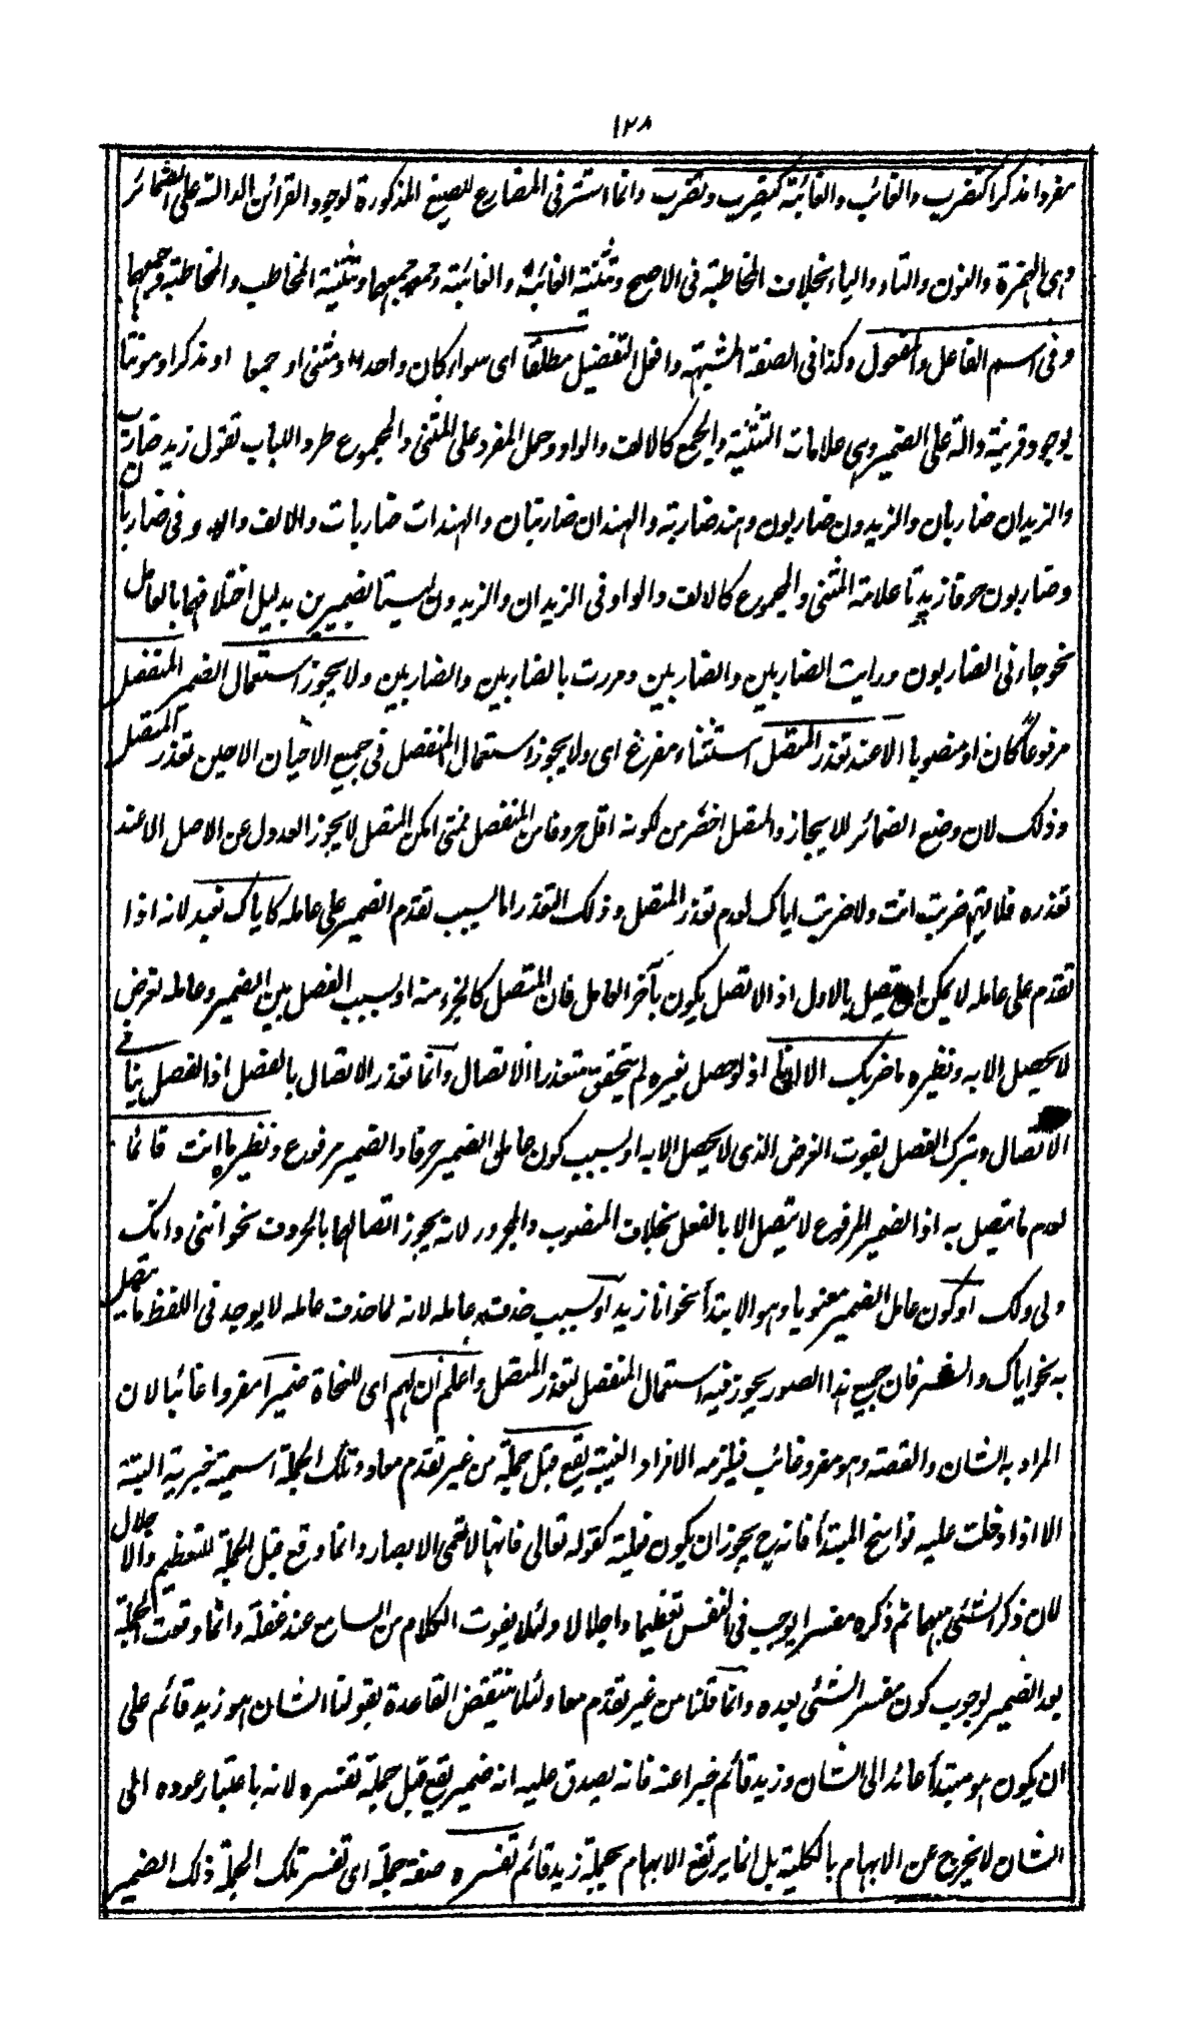 ١٢٨
مفردا مذكرا كتضرب والغائب والغائبة كيضرب وتضرب وانما استتر فى المضارع للصيغ المذكورة لوجود القرائن الدالة على الضمائر
وهى الهمزة والنون والتاء والياء بخلاف المخاطبة فى الاصح وتثنية الغائب والغائبة وجمعهما وتثنية المخاطب والمخاطبة وجمعهما
وفى اسم الفاعل والمفعول وكذا فى الصفة المشبهة وافعل التفضيل مطلقا اى سواء كان واحدا او مثنى او جمعا او مذكرا او مونثا
لوجود قرينة دالة على الضمير وهى علامات التثنية والجمع كالالف والواو وحمل المفرد على المثنى والمجموع طرد اللباب تقول زيد ضارب
والزيدان ضاربان والزيدون ضاربون وهند ضاربة والهندان ضاربتان والهندات ضاربات والالف والواو فى ضاربان
وضاربون حرفا زيدتا علامة المثنى والمجموع كالالف والواو فى الزيدان والزيدون ليستا بضميرين بدليل اختلافهما بالعامل
نحو جاءنى الضاربون ورايت الضاربين والضاربين ومررت بالضاربين والضاربين ولا يجوز استعمال الضمير المنفصل
مرفوعا كان او منصوبا الا عند تعذر المتصل استثناء مفرغ اى ولا يجوز استعمال المنفصل فى جميع الاحيان الا حين تعذر المتصل
وذلك لان وضع الضمائر للايجاز والمتصل اخصر من لكونه اقل حروفا من المنفصل فمتى امكن المتصل لا يجوز العدول عن الاصل الا عند
تعذره فلا يتم ضربت انت ولا ضربت اياك لعدم تعذر المتصل وذلك التعذر اما لسبب تقدم الضمير على عامله كاياك نعبد لانه اذا
تقدم على عامله لا يمكن ان يتصل بالاول اذ الاتصل يكون بآخر العامل فان المتصل كالجزء منه او بسبب الفصل بين الضمير وعامله لغرض
لا يحصل الا به ونظيره ما ضربك الا انا اذ لو حصل بغيره لم يتحقق متعذرا الاتصال وانما تعذر الاتصال بالفصل اذ الفصل ينافى
الاتصال وبترك الفصل يفوت الغرض الذى لا يحصل الا به او لسبب كون عامل الضمير حرفا والضمير مرفوع ونظيره ما انت قائما
لعدم ما يتصل به اذ الضمير المرفوع لا يتصل الا بالفعل بخلاف المنصوب والمجرور لانه يجوز اتصالهما بالحروف نحو اننى وانك
ولى ولك او كون عامل الضمير معنويا وهو الابتداء نحو انا زيد او بسبب حذف عامله لانه لما حذف عامله لا يوجد فى اللفظ ما يتصل
به نحو اياك والشر فان جميع هذا الصور يجوز فيه استعمال المنفصل لتعذر المتصل واعلم ان لهم اى للنحاة ضميرا مفردا غائبا لان
المراد به الشان والقصة وهو مفرد غائب فيلزمه الافراد والغيبة يقع قبل جملة من غير تقدم معاد وتلك الجملة اسمية خبرية البتة
الا اذا دخلت عليه نواسخ المبتدأ فانه ح يجوز ان يكون فعلية كقوله تعالى فانها لا تعمى الابصار وانما وقع قبل الجملة للتعظيم والاجلال
لان ذكر الشئى مبهما ثم ذكره مفسرا يوجب فى النفس تعظيما واجلالا ولئلا يفوت الكلام من السامع عند غفلة وانما وقعت الجملة
بعد الضمير لوجوب كون مفسر الشئى بعده وانما قلنا من غير تقدم معاد لئلا ينتقض القاعدة بقولنا الشان هو زيد قائم على
ان يكون هو مبتدأ عائد الى الشان وزيد قائم خبرا عنه فانه يصدق عليه انه ضمير يقع قبل جملة تفسره لانه باعتبار عوده الى
الشان لا يخرج عن الابهام بالكلية بل انما يرتفع الابهام بجملة زيد قائم تفسره صفة جملة اى تفسر تلك الجملة ذلك الضمير